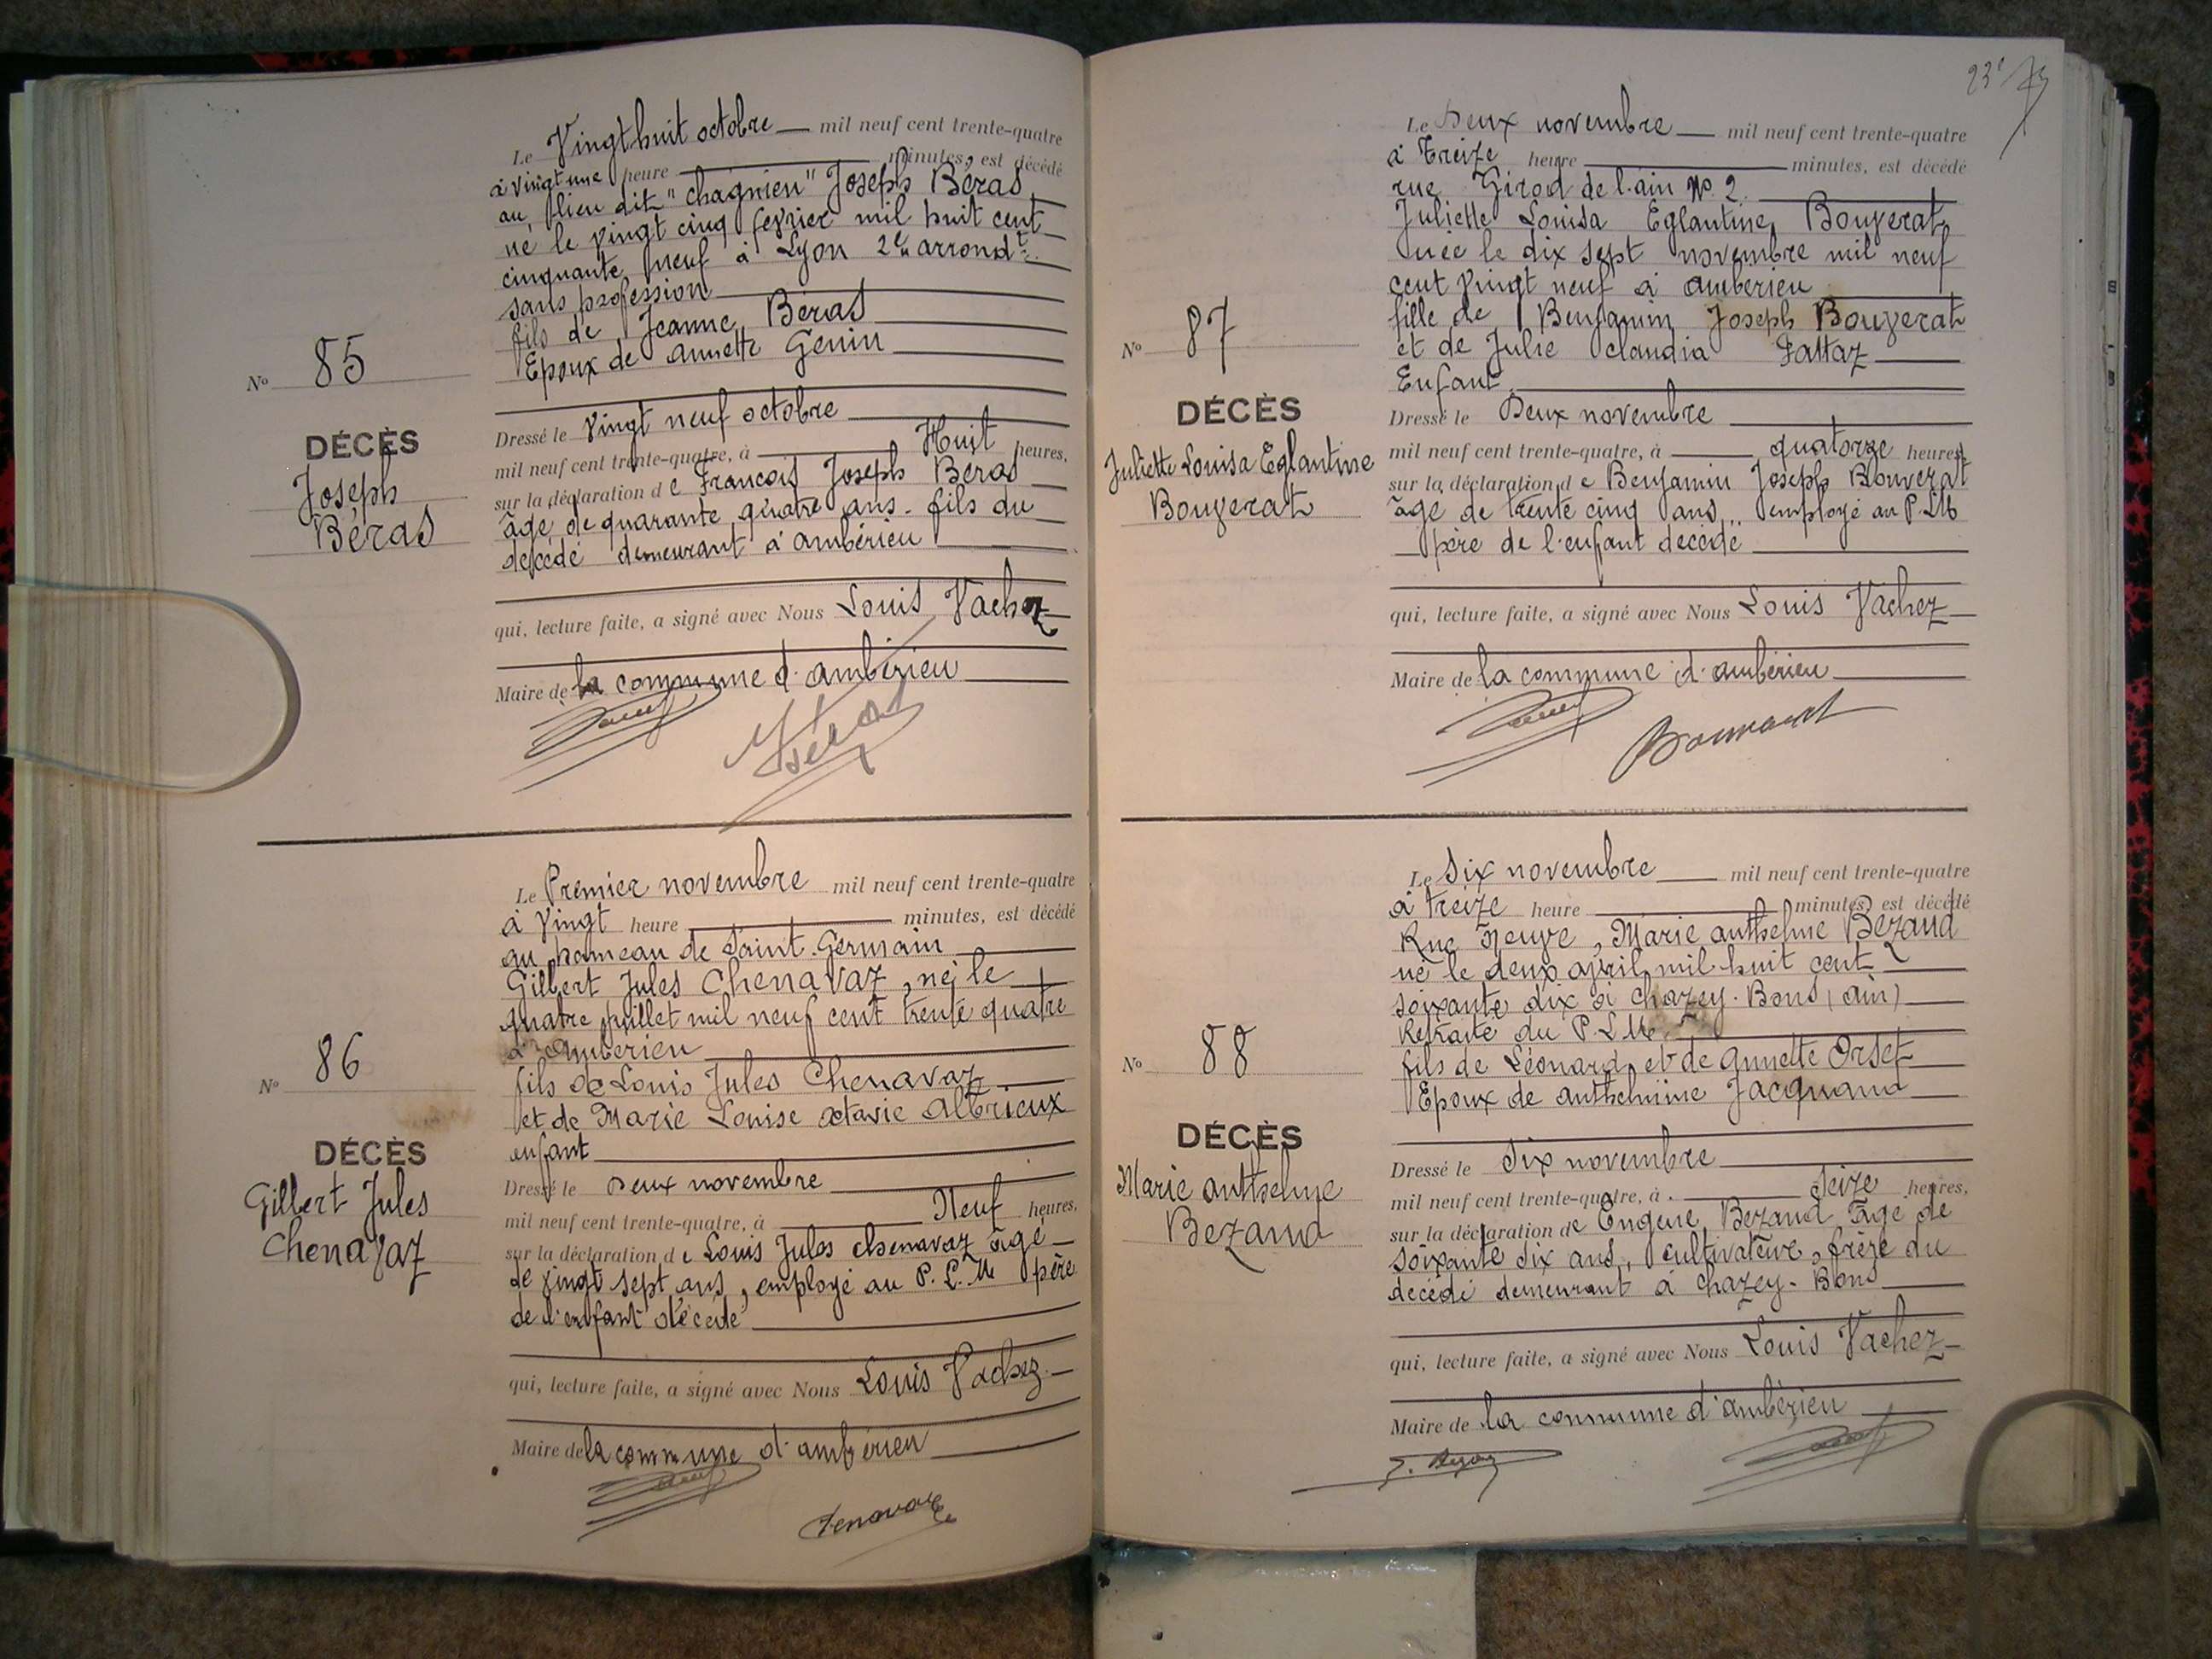 Le Vingt huit octobre mil neuf cent trente-quatre
à vingt une heure minutes, est décédé
au lieu dit "Chagnieu" Joseph Béras
né le vingt cinq février mil huit cent
cinquante neuf à Lyon 2e arrondt.
sans profession
fils de Jeanne Béras
Epoux de Annette Genin
No 85
DÉCÈS
Joseph
Béras
Dressé le vingt neuf octobre
mil neuf cent trente-quatre, à Huit heures,
sur la déclaration de Francois Joseph Béras
âgé de quarante quatre ans. fils du
décédé demeurant à ambérieu
qui, lecture faite, a signé avec Nous Louis Vachez
Maire de la commune d'ambérieu
Béras
Le Premier novembre mil neuf cent trente-quatre
à Vingt heure minutes, est décédé
au hameau de Saint Germain
Gilbert Jules Chenavaz, né le
quatre juillet mil neuf cent trente quatre
à ambérieu
fils de Louis Jules Chenavaz
et de Marie Louise octavie Albrieux
enfant
No 86
DÉCÈS
Gilbert Jules
Chenavaz
Dressé le Deux novembre
mil neuf cent trente-quatre, à Neuf heures,
sur la déclaration de Louis Jules Chenavaz âgé
de vingt sept ans, employé au P.L.M père
de l'enfant décédé
qui, lecture faite, a signé avec Nous Louis Vachez
Maire de la commune d'ambérieu
Chenavaz
23
Le Deux novembre mil neuf cent trente-quatre
à Treize heure minutes, est décédé
rue Girod de l'ain No. 2.
Juliette Louisa Eglantine Bouverat
née le dix sept novembre mil neuf
cent vingt neuf à ambérieu
fille de Benjamin Joseph Bouverat
et de Julie Claudia Fattaz
Enfant.
No 87
DÉCÈS
Juliette Louisa Eglantine
Bouverat
Dressé le Deux novembre
mil neuf cent trente-quatre, à quatorze heures,
sur la déclaration de Benjamin Joseph Bouverat
âgé de trente cinq ans, employé au P.LM
père de l'enfant décédé
qui, lecture faite, a signé avec Nous Louis Vachez
Maire de la commune d'ambérieu
Bouverat
Le Six novembre mil neuf cent trente-quatre
à Treize heure minutes, est décédé
Rue Neuve, Marie anthelme Bezand
né le deux avril mil huit cent
soixante dix à Chazey-Bons (ain)
Retraité du P L M.
fils de Léonard et de Annette Orset
Epoux de anthelmine Jacquand
No 88
DÉCÈS
Marie anthelme
Bezand
Dressé le Six novembre
mil neuf cent trente-quatre, à Seize heures,
sur la déclaration de Eugene Bezand âgé de
soixante dix ans, cultivateur, frère du
décédé demeurant à Chazey-Bons
qui, lecture faite, a signé avec Nous Louis Vachez
Maire de la commune d'ambérieu